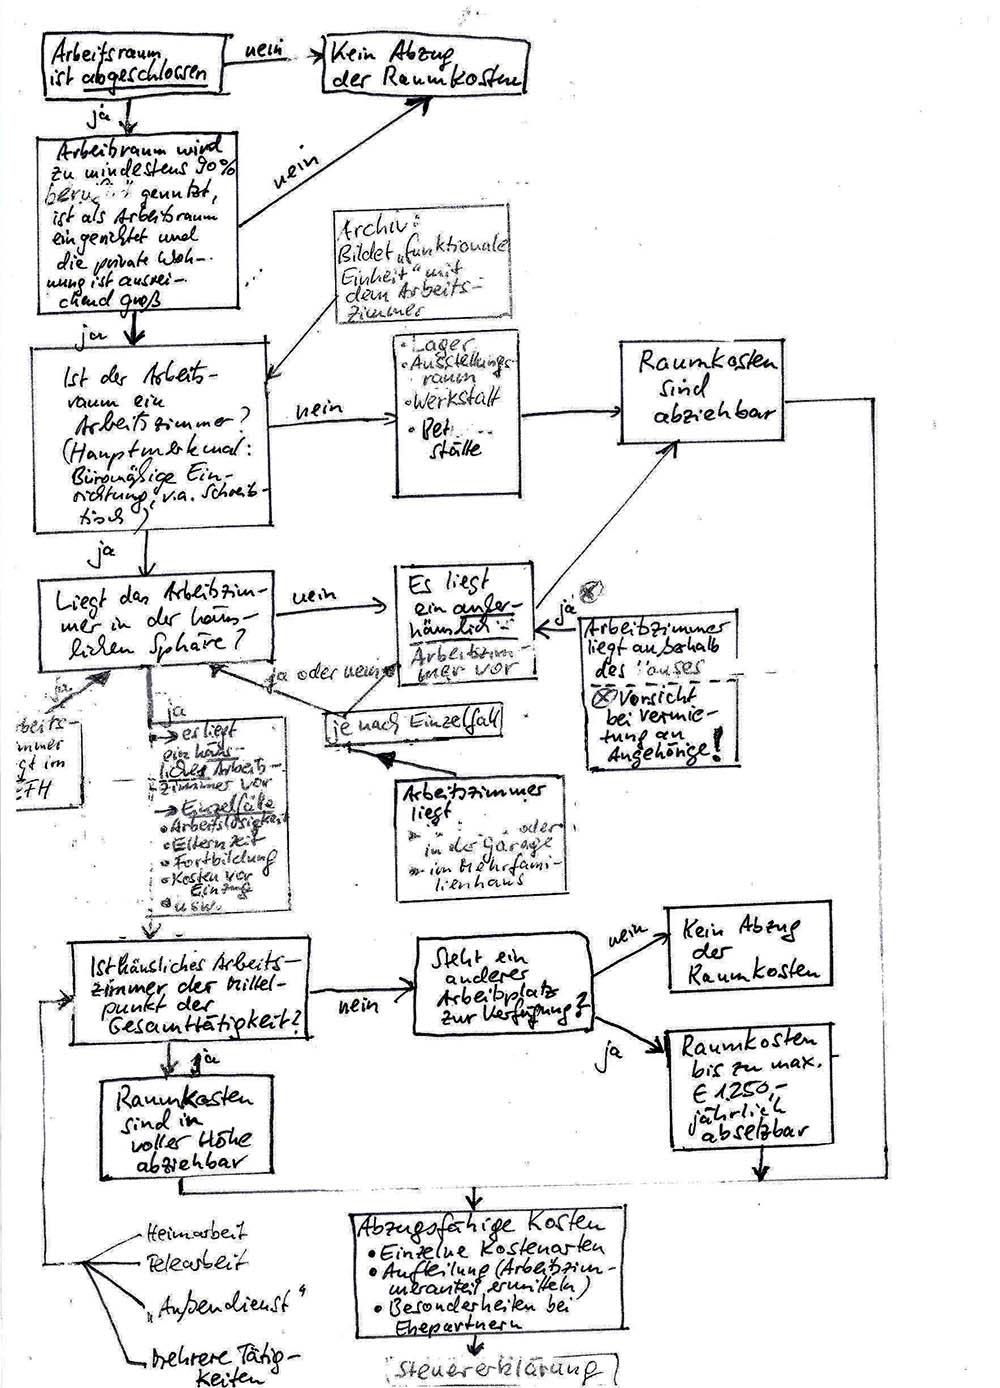 Arbeitsraum
ist abgeschlossen
nein
Kein Abzug
der Raumkosten
ja
Arbeitsraum wird
zu mindestens 90%
genutzt,
ist als Arbeitsraum
eingerichtet und
die private Woh-
nung ist ausrei-
chend groß
nein
Archiv:
Bildet „funktionale
Einheit" mit
dem Arbeits-
zimmer
ja
Ist der Arbeits-
raum ein
Arbeitszimmer?
(Hauptmerkmal:
Büromäßige Ein-
richtung, v.a. Schreib-
tisch)
nein
• Lager
• Ausstellungs-
raum
• Werkstatt
•
stätte
Raumkosten
sind
abziehbar
ja
Liegt das Arbeitszim-
mer in der häus-
lichen Sphäre?
nein
Es liegt
ein außer-
häuslich
Arbeitszim-
mer vor
ja
Arbeitszimmer
liegt außerhalb
des
⊗ Vorsicht
bei Vermie-
tung an
Angehörige!
ja oder nein
je nach Einzelfall
ja
gt im
ja
→ es liegt
ein häus-
liches Arbeits-
zimmer vor
→ Einzelfälle
• Arbeitslosigkeit
• Elternzeit
• Fortbildung
• Kosten vor
Einzug
• usw.
Arbeitszimmer
liegt
oder
in der Garage
im Mehrfami-
lienhaus
Ist häusliches Arbeits-
zimmer der Mittel-
punkt der
Gesamttätigkeit?
nein
Steht ein
anderer
Arbeitsplatz
zur Verfügung?
nein
Kein Abzug
der
Raumkosten
ja
Raumkosten
bis zu max.
€ 1.250,-
jährlich
absetzbar
ja
Raumkosten
sind in
voller Höhe
abziehbar
Heimarbeit
Telearbeit
„Außendienst"
Mehrere Tätig-
keiten
Abzugsfähige Kosten
• Einzelne Kostenarten
• Aufteilung (Arbeitszim-
meranteil ermitteln)
• Besonderheiten bei
Ehepartnern
Steuererklärung